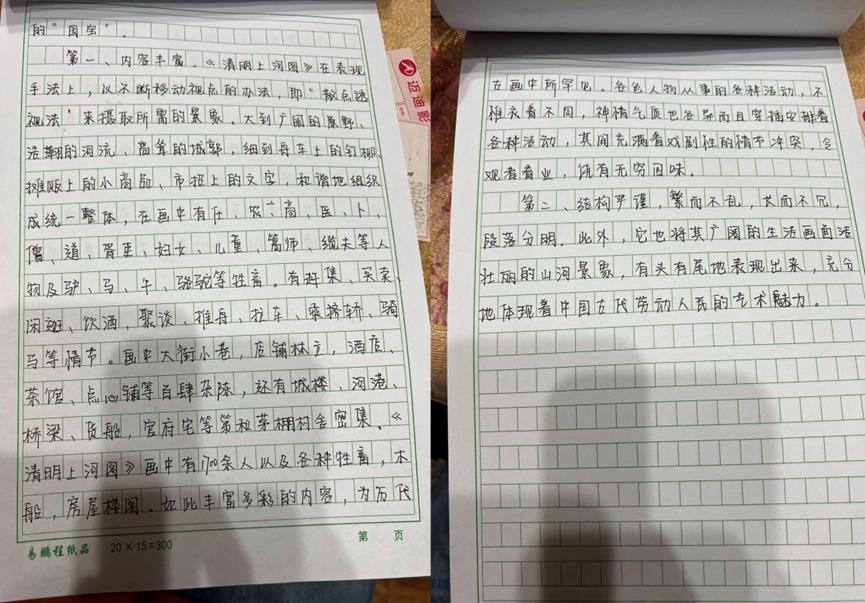 的“国宝”.
第一、内容丰富.《清明上河图》在表现
手法上,以不断移动视点的办法,即“散点透
视法”来摄取所需的景象。大到广阔的原野、
浩翻的河流、高耸的城郭,细到舟车上的钉柳、
摊贩上的小商品、市招上的文字,和谐地组织
成统一整体,在画中有仕、农、商、医、卜、
僧、道、胥吏、妇女、儿童、篙师、缆夫等人
物及驴、马、牛、骆驼等牲畜。有赶集、买卖、
闲逛、饮酒、聚谈、推舟、拉车、乘轿、骑
马等情节。画中大街小巷,店铺林立,酒店、
茶馆、点心铺等百肆杂陈,还有城楼、河港、
桥梁、货船,官府宅等第和茅棚村舍密集。《
清明上河图》画中有1700余人以及各种牲畜,木
船,房屋楼阁。如此丰富多彩的内容,为历代
易鹏程纸品 20×15=300 第 页
迈迪影
古画中所罕见。各色人物从事的各种活动,不
惟衣着不同,神情气质也各异而且穿插安排着
各种活动,其间充满着戏剧性的情节冲突,令
观者看业,饶有无穷回味。
第二、结构严谨,繁而不乱,长而不冗,
段落分明。此外,它也将其广阔的生活画面活
壮丽的山河景象,有头有尾地表现出来,充分
地体现着中国古代劳动人民的艺术魅力。